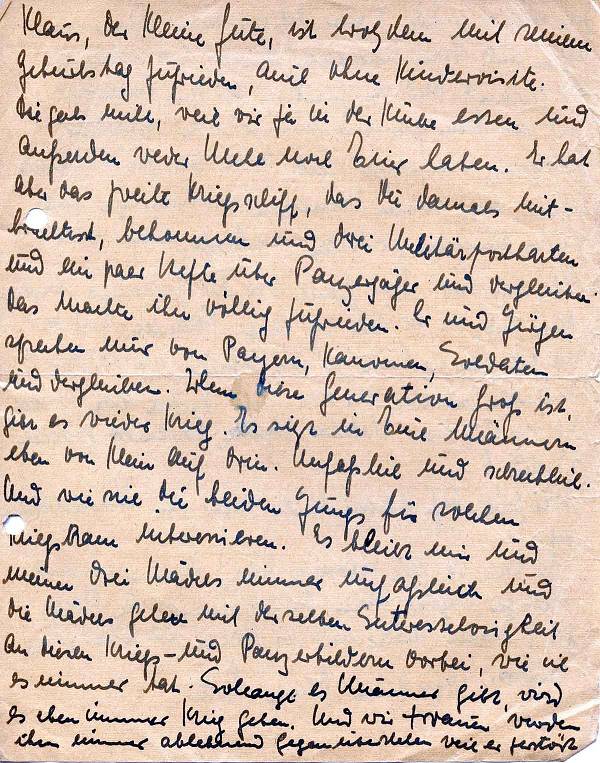 Klaus, der kleine Gute, ist trotzdem mit seinem
Geburtstag zufrieden, auch ohne Kindervisite.
Die geht nicht, weil wir ja in der Küche essen und
außerdem weder Mehl noch Eier haben. Er hat
aber das zweite Kriegsschiff, das Du damals mit-
brachtest, bekommen und drei Militärpostkarten
und ein paar Hefte über Panzerjäger und dergleichen.
Das machte ihn völlig zufrieden. Er und Jürgen
sprechen nur von Panzern, Kanonen, Soldaten
und dergleichen. Wenn diese Generation groß ist,
gibt es wieder Krieg. Es sitzt in Euch Männern
eben von klein auf drin. Unfaßlich und schrecklich.
Und wie sie die beiden Jungs für solchen
Kriegskram interessieren. Es bleibt mir und
meinen drei Mädels immer unfasslich und
die Mädels gehen mit derselben Interesselosigkeit
an diesen Kriegs- und Panzerbildern vorbei, wie ich
es immer tat. Solange es Männer gibt, wird
es eben immer Krieg geben. Und wir Frauen werden
ihm immer ablehnend gegenüberstehen weil er zerstört